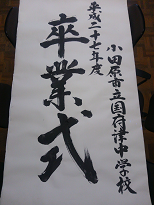 平成二十七年度
小田原市立国府津中学校
卒業式